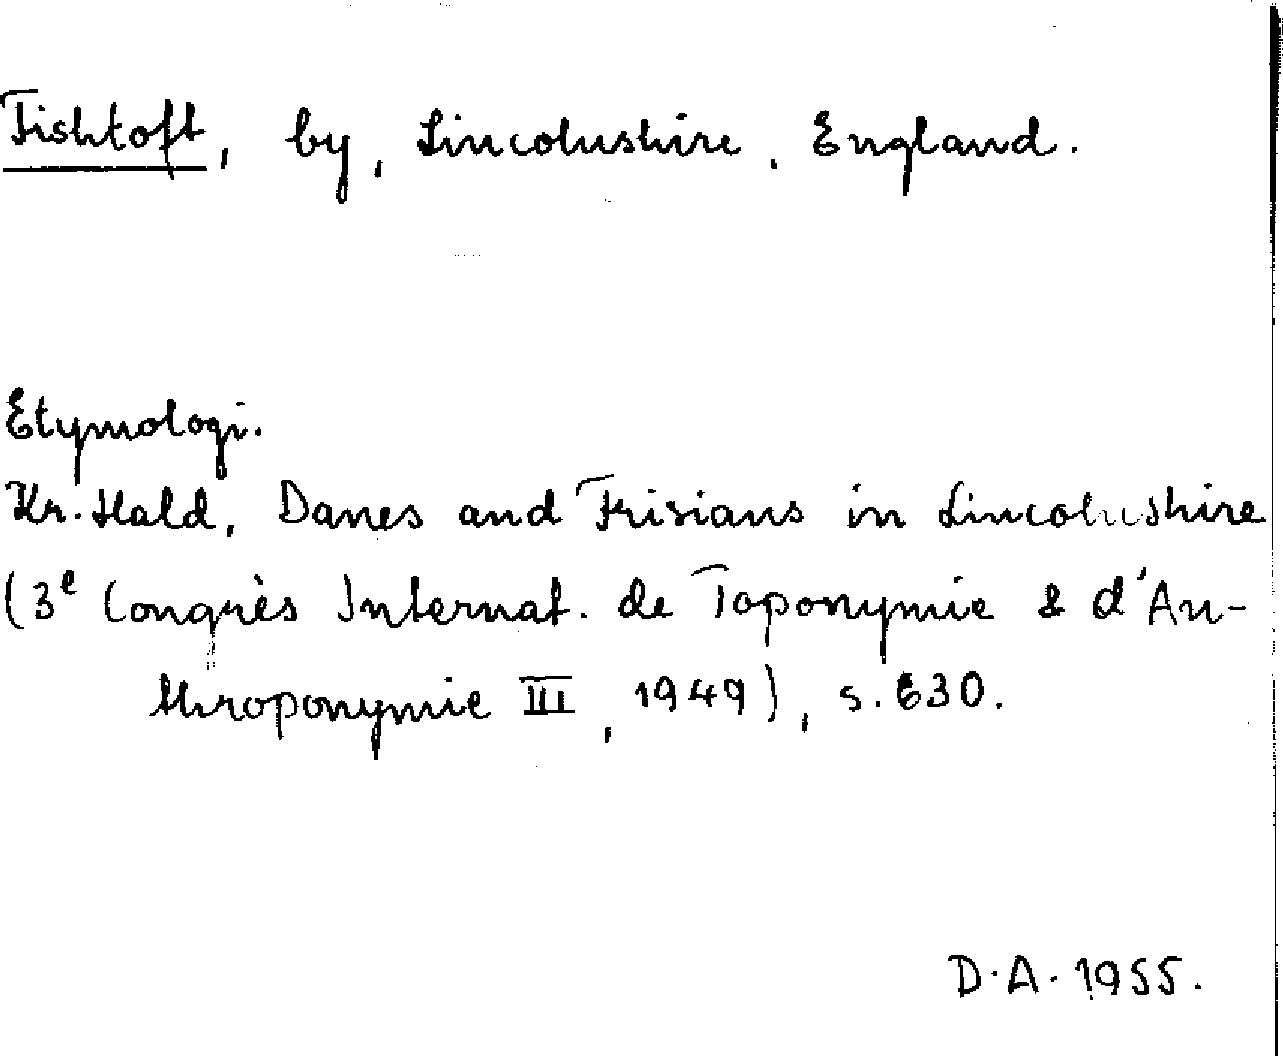 Fishtoft, by, Lincolnshire, England.
Etymologi.
Kr. Hald, Danes and Frisians in Lincolnshire
(3e Congrès Internat. de Toponymie & d'An-
throponymie III, 1949), s. 630.
D.A. 1955.